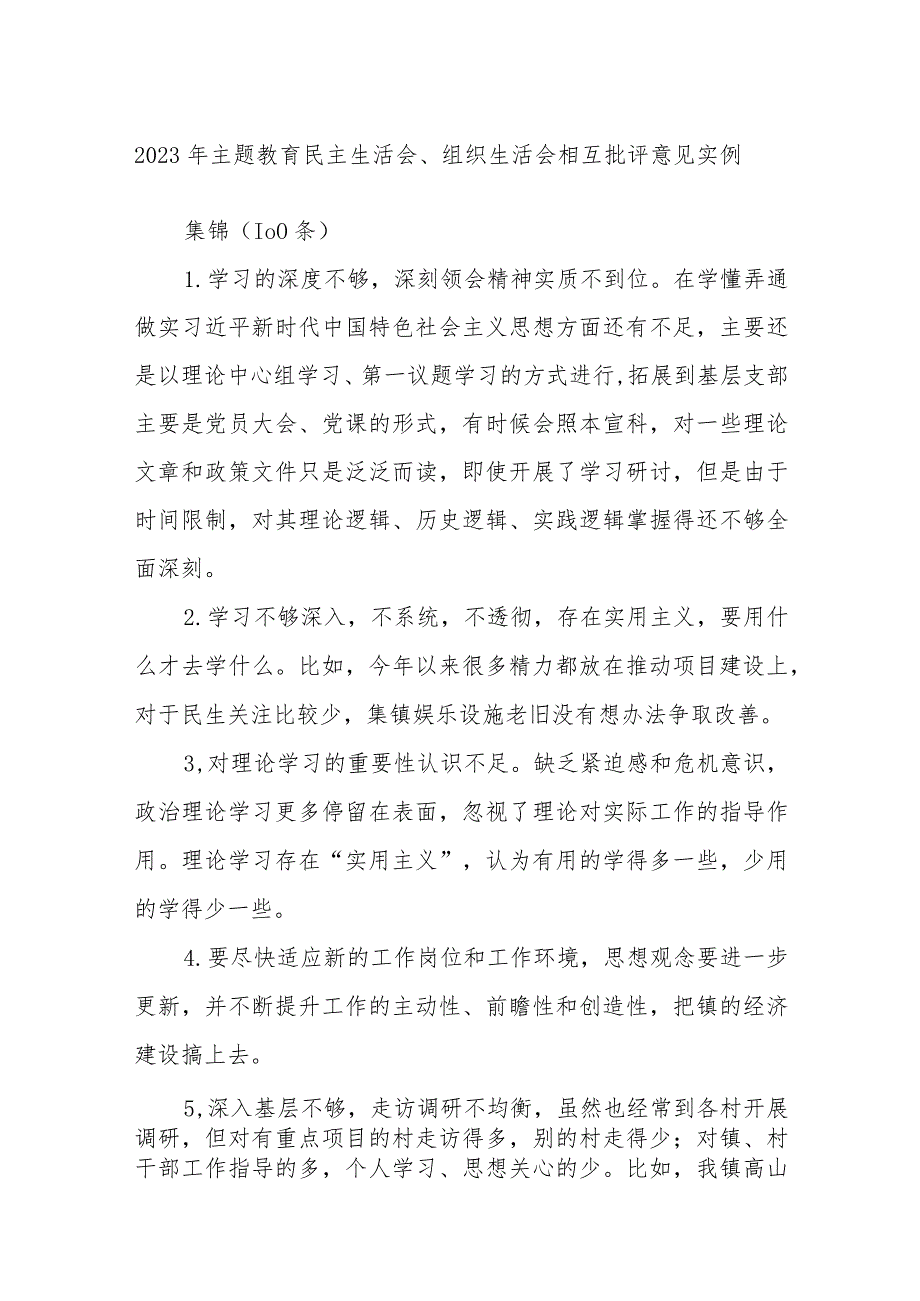 2023 年主题教育民主生活会、组织生活会相互批评意见实例
集锦（IoO 条）
1.学习的深度不够，深刻领会精神实质不到位。在学懂弄通
做实习近平新时代中国特色社会主义思想方面还有不足，主要还
是以理论中心组学习、第一议题学习的方式进行,拓展到基层支部
主要是党员大会、党课的形式，有时候会照本宣科，对一些理论
文章和政策文件只是泛泛而读，即使开展了学习研讨，但是由于
时间限制，对其理论逻辑、历史逻辑、实践逻辑掌握得还不够全
面深刻。
2.学习不够深入，不系统，不透彻，存在实用主义，要用什
么才去学什么。比如，今年以来很多精力都放在推动项目建设上，
对于民生关注比较少，集镇娱乐设施老旧没有想办法争取改善。
3,对理论学习的重要性认识不足。缺乏紧迫感和危机意识，
政治理论学习更多停留在表面，忽视了理论对实际工作的指导作
用。理论学习存在“实用主义”，认为有用的学得多一些，少用
的学得少一些。
4.要尽快适应新的工作岗位和工作环境，思想观念要进一步
更新，并不断提升工作的主动性、前瞻性和创造性，把镇的经济
建设搞上去。
5,深入基层不够，走访调研不均衡，虽然也经常到各村开展
调研，但对有重点项目的村走访得多，别的村走得少；对镇、村
干部工作指导的多，个人学习、思想关心的少。比如，我镇高山